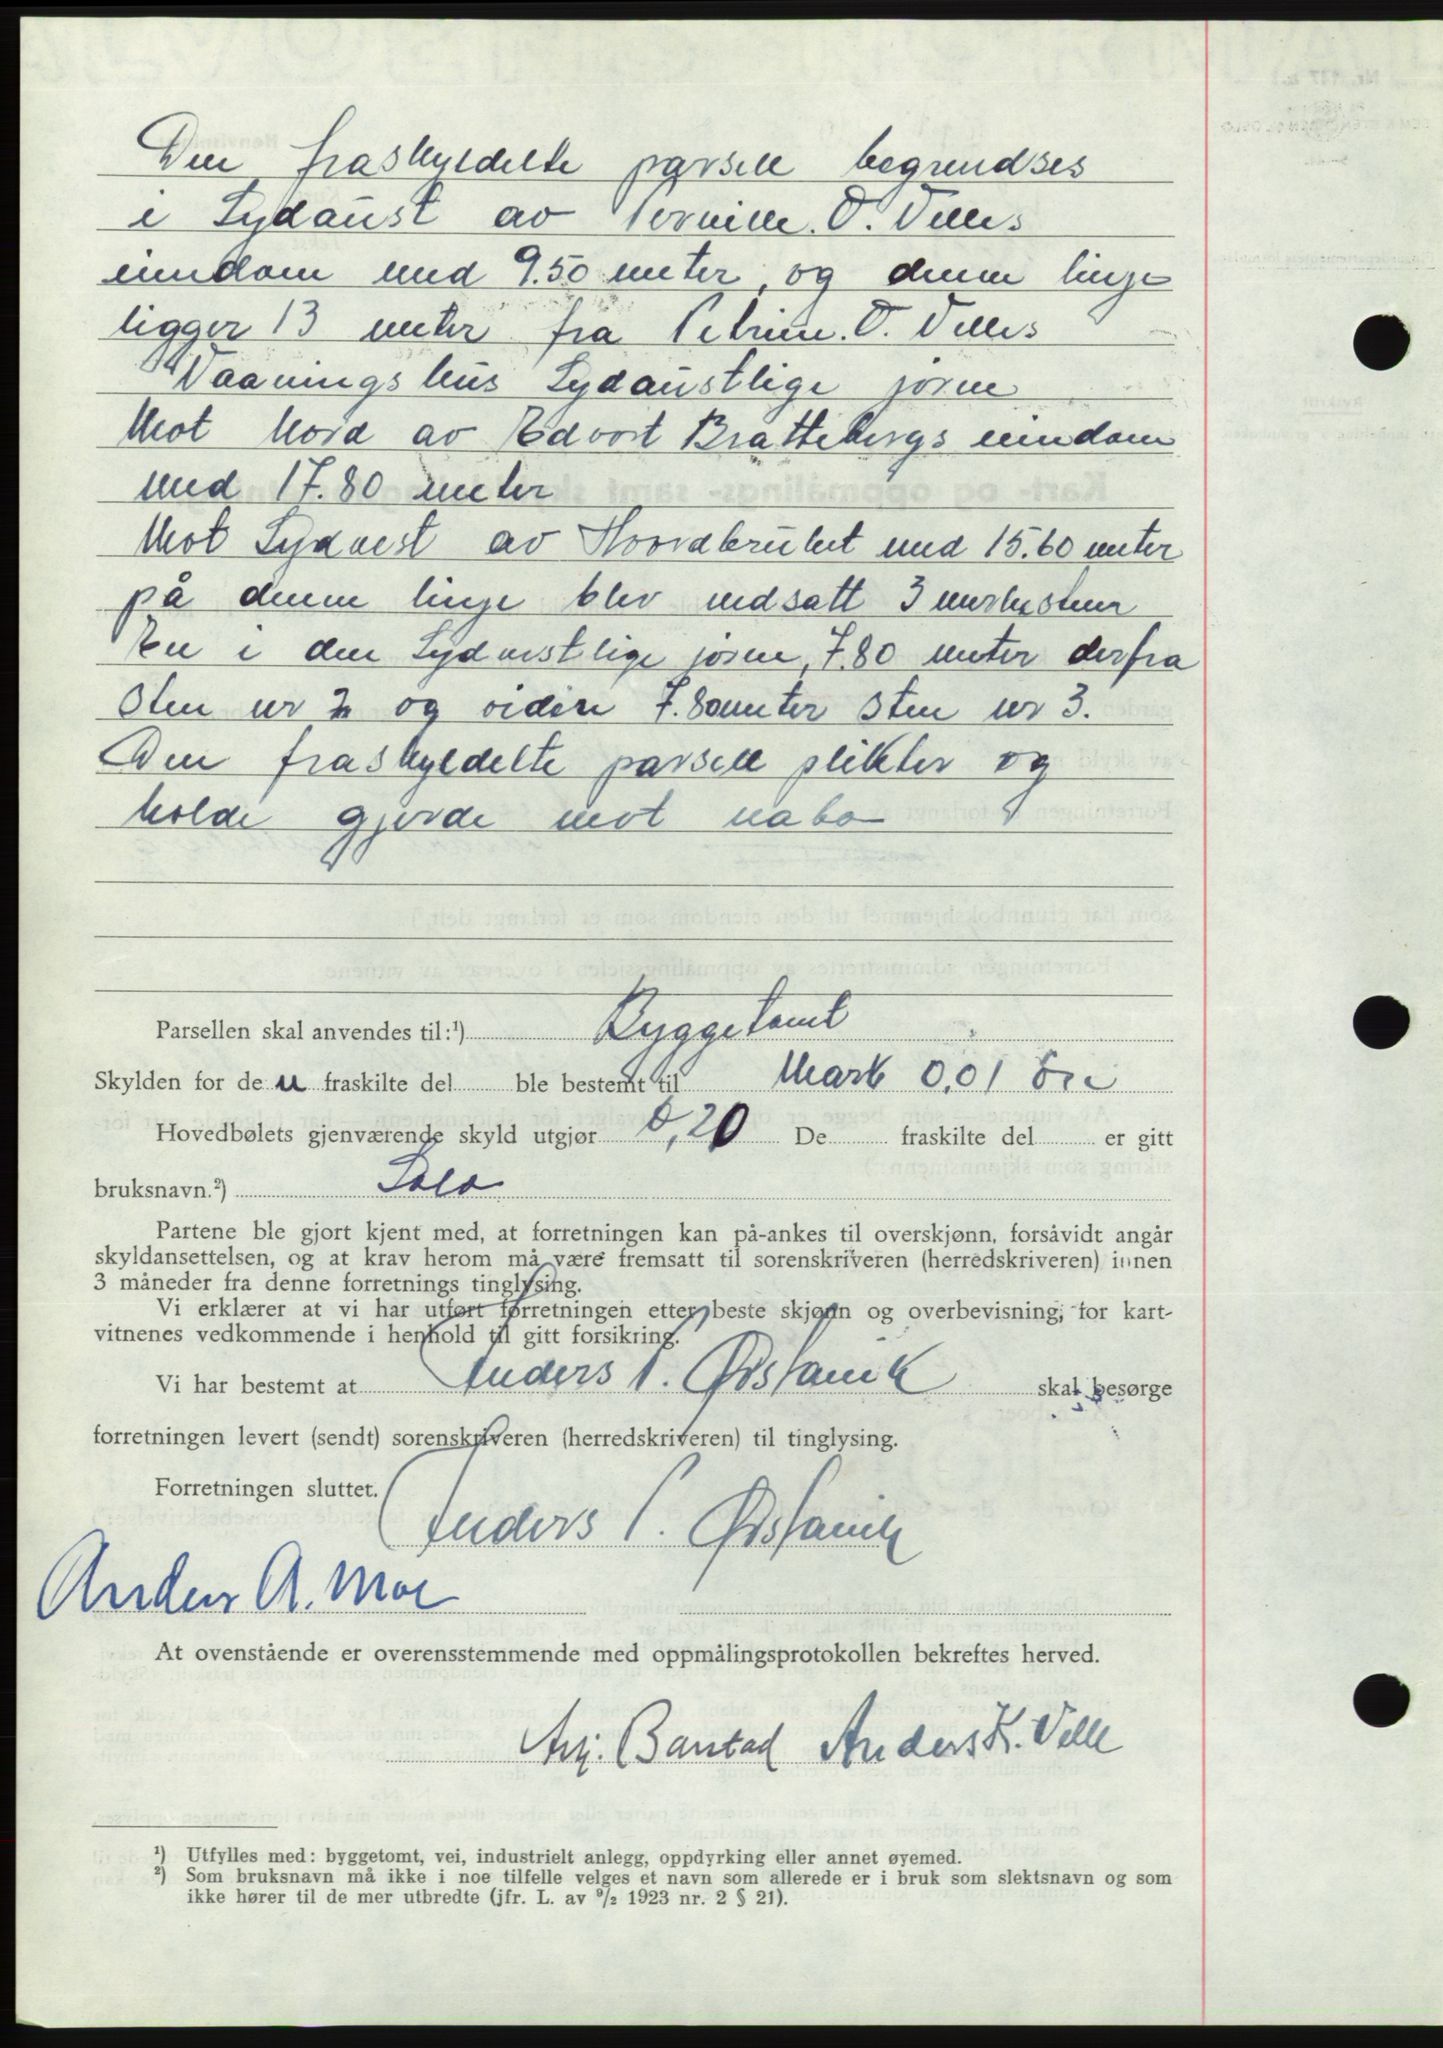 Den fraskyldelte parsell begrendses
i Sydaust av Pernille. O. Velles
eiendom med 9.50 meter, og denne linje
ligger 13 meter fra Petrine. O. Velles
Vaanings hus Sydaustlige jørne
Mot Nord av Edvart Brattebergs eiendom
med 17.80 meter
Mot Sydvest av Hovedbruket med 15.60 meter
på denne linje blev nedsatt 3 merkestener
En i den Sydvestlige jørne, 7.80 meter derfra
Sten nr 2 og videre 7.80 meter Sten nr 3.
Den fraskyldelte parsell plikter og
holde gjerde mot nabo
Parsellen skal anvendes til:¹) Byggetomt
Skylden for den fraskilte del ble bestemt til Mark 0,01 øre
Hovedbølets gjenværende skyld utgjør 0,20 De fraskilte del er gitt
bruksnavn.²) Solo
Partene ble gjort kjent med, at forretningen kan på-ankes til overskjønn, forsåvidt angår
skyldansettelsen, og at krav herom må være fremsatt til sorenskriveren (herredskriveren) innen
3 måneder fra denne forretnings tinglysing.
Vi erklærer at vi har utført forretningen etter beste skjønn og overbevisning, for kart-
vitnenes vedkommende i henhold til gitt forsikring.
Vi har bestemt at Anders P. Ørstavik skal besørge
forretningen levert (sendt) sorenskriveren (herredskriveren) til tinglysing.
Forretningen sluttet.
Anders P. Ørstavik
Anders A. Moe
At ovenstående er overensstemmende med oppmålingsprotokollen bekreftes herved.
Anders K. Velle
¹) Utfylles med: byggetomt, vei, industrielt anlegg, oppdyrking eller annet øyemed.
²) Som bruksnavn må ikke i noe tilfelle velges et navn som allerede er i bruk som slektsnavn og som
ikke hører til de mer utbredte (jfr. L. av 9/2 1923 nr. 2 § 21).